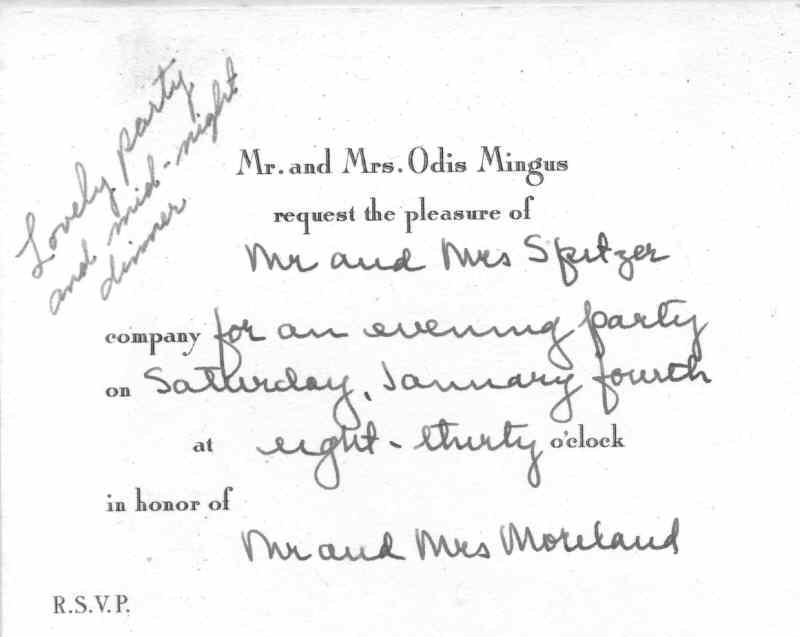 Lovely party
and mid-night
dinner
Mr. and Mrs. Odis Mingus
request the pleasure of
Mr and Mrs Spitzer
company for an evening party
on Saturday, January fourth
at eight-thirty o'clock
in honor of
Mr and Mrs Moreland
R.S.V.P.